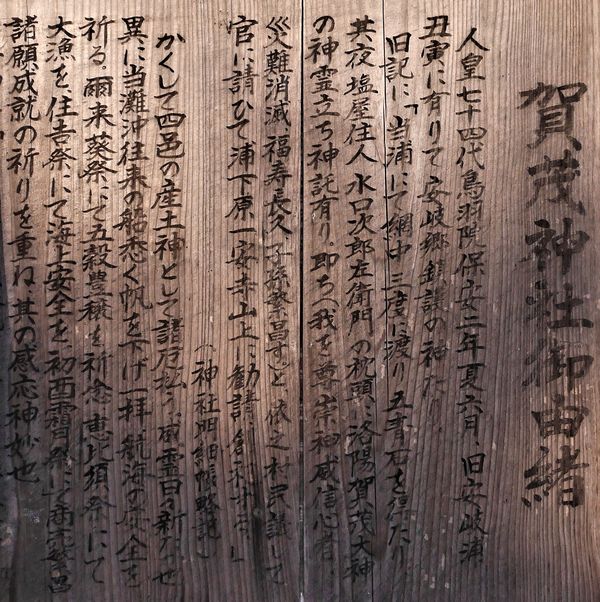 賀茂神社御由緒
人皇七十四代鳥羽院保安二年夏六月、旧安岐浦
丑寅に有りて安岐郷鎮護の神たり
旧記に「当浦にて網中三度に渡り五青石を得たり
其夜塩屋住人水口次郎左衛門の枕頭に洛陽賀茂大神
の神霊立ち神託有り。即ち〈我を尊崇神感信心者、
災難消滅、福寿長久、子孫繁昌す〉と依之村民議して
官に請ひて浦下原一安寺山上に勧請、創祀す云々」
(神社明細帳略記)
かくして四邑の産土神として諸厄払う。威霊日々新たにせ
異に当灘沖往来の船悉く帆を下げ一拝航海の安全を
祈る。爾来葵祭にて五穀豊穣を祈念、恵比須祭にて
大漁を、住吉祭にて海上安全を、初酉霜月祭にて商売繁昌
諸願成就の祈りを重ね其の感応神妙也